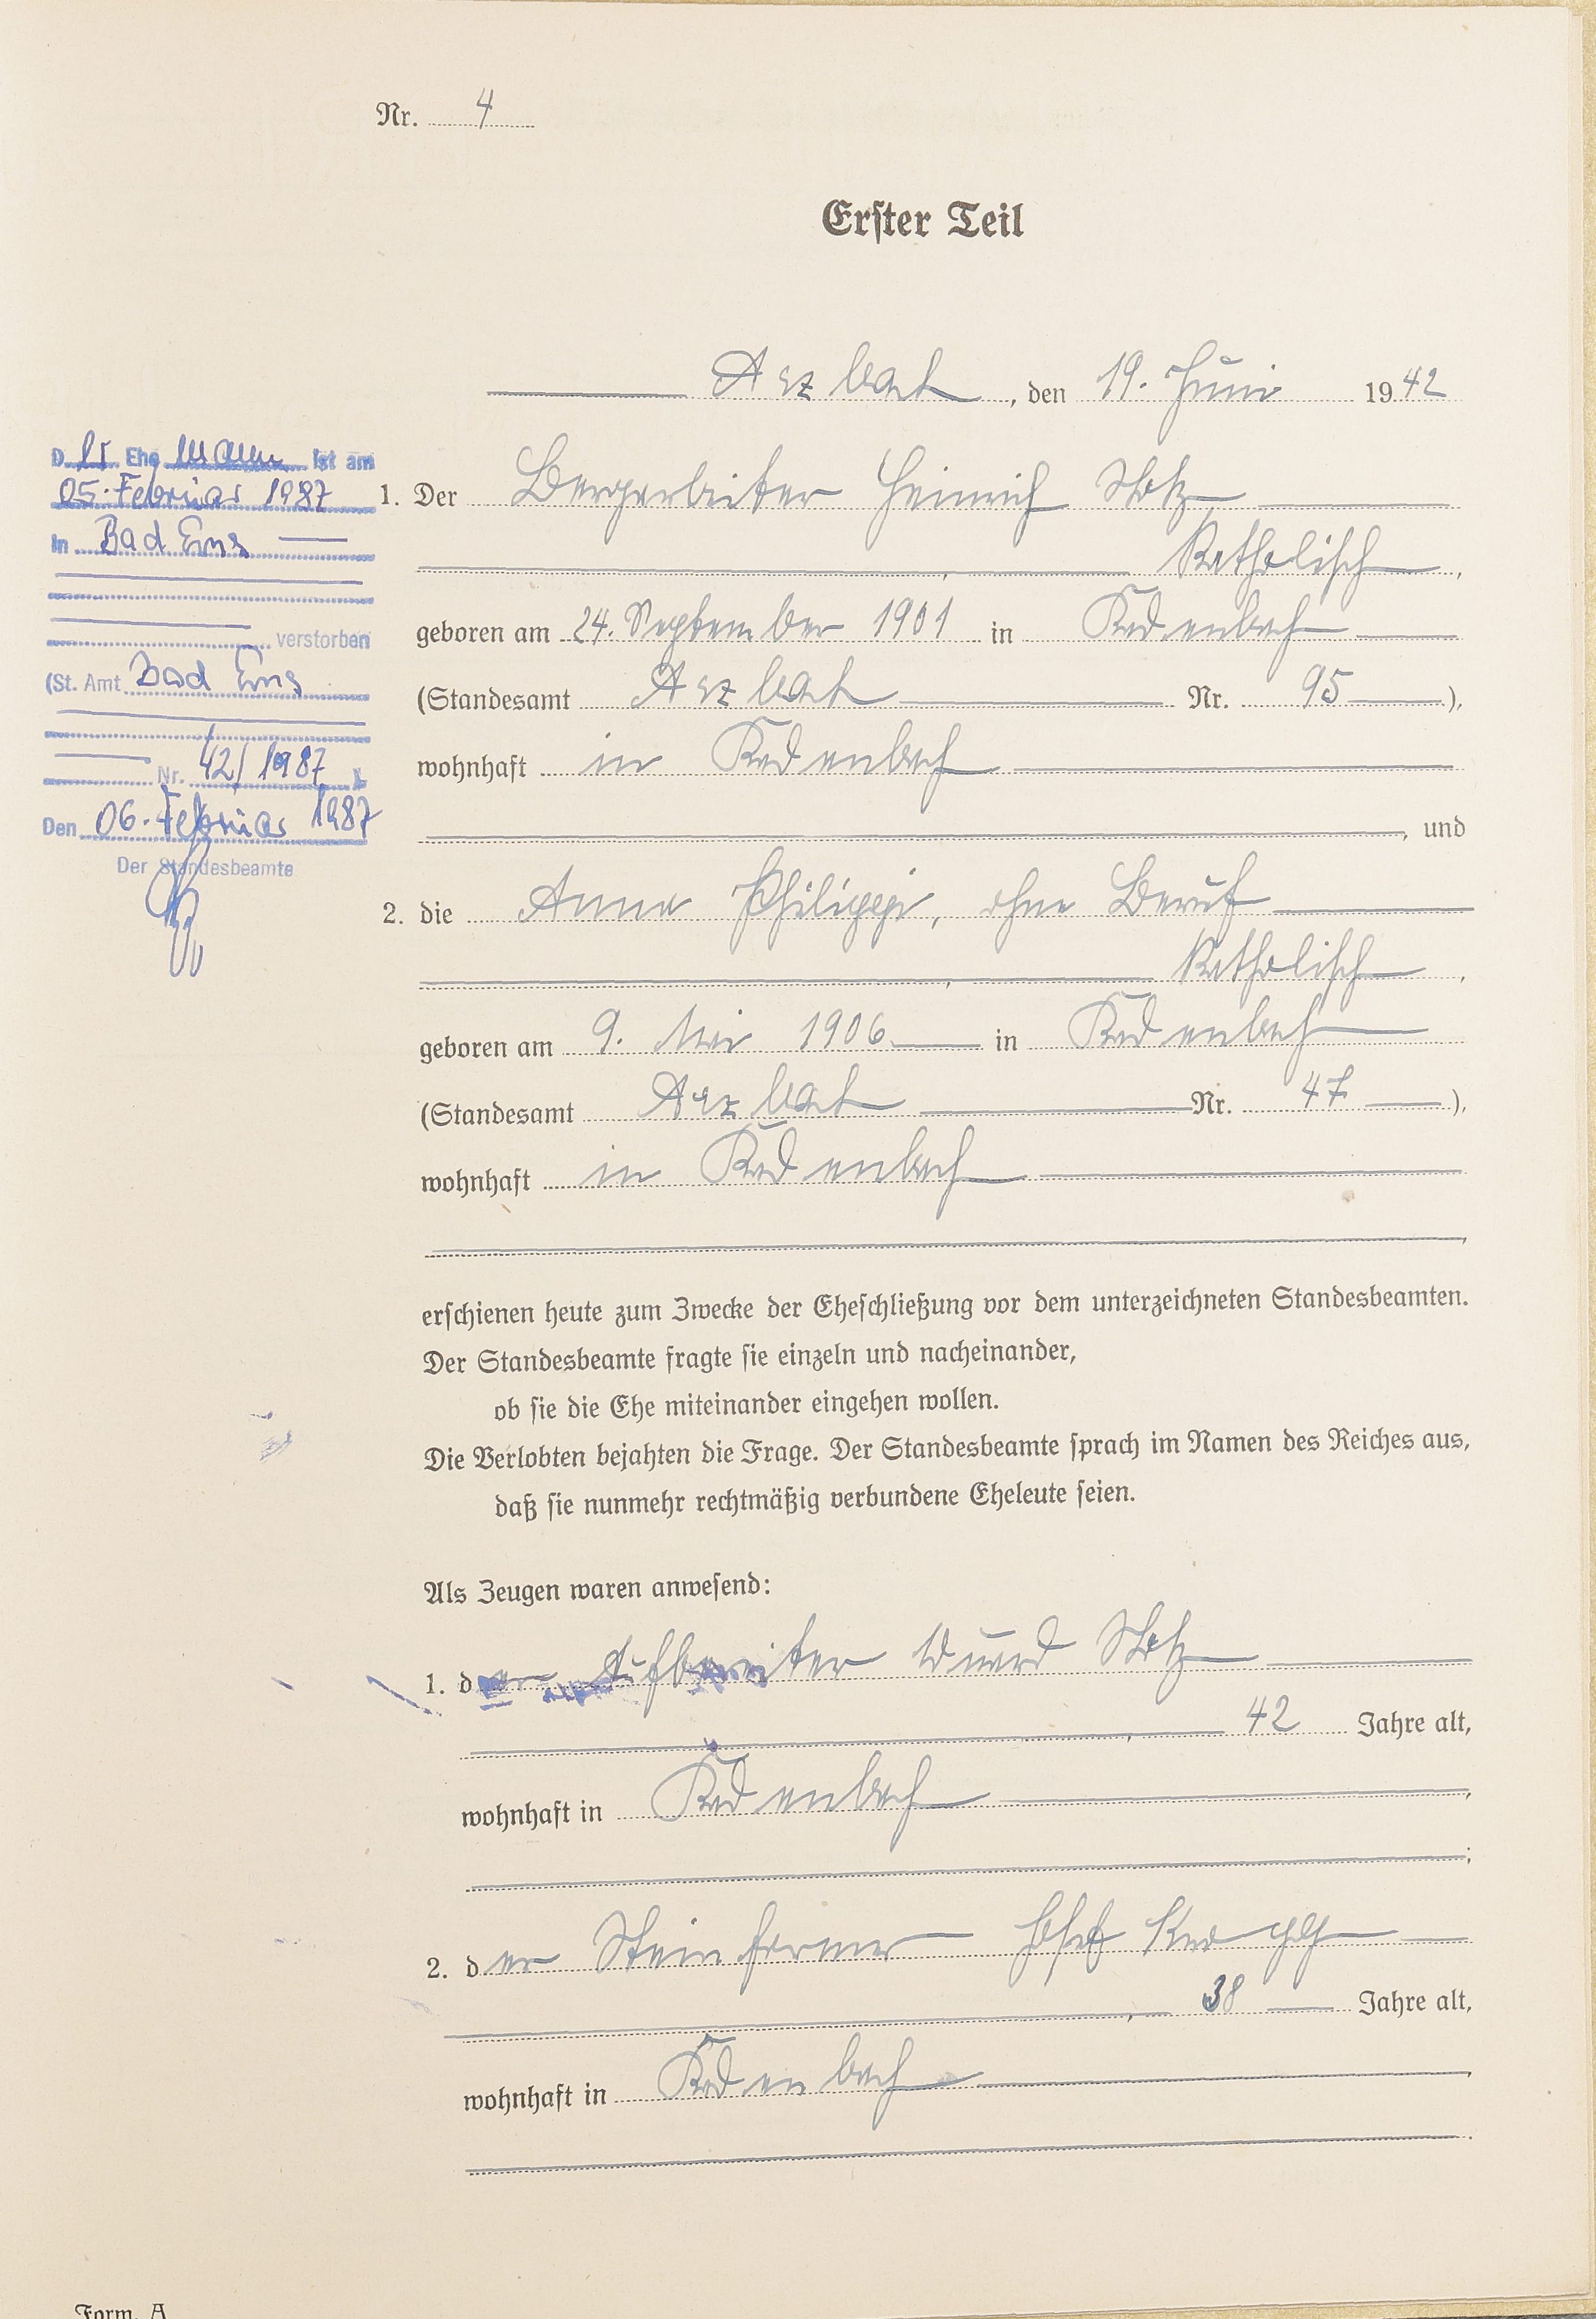 Nr. 4
Erster Teil
Arzbach, den 19. Juni 1942
1. Der Bergarbeiter Heinrich Stotz
, Katholisch,
geboren am 24. September 1901 in Kadenbach
(Standesamt Arzbach Nr. 95),
wohnhaft in Kadenbach
, und
2. die Anna Philippi, ohne Beruf
, Katholisch,
geboren am 9. Mai 1906 in Kadenbach
(Standesamt Arzbach Nr. 47),
wohnhaft in Kadenbach
,
erschienen heute zum Zwecke der Eheschließung vor dem unterzeichneten Standesbeamten.
Der Standesbeamte fragte sie einzeln und nacheinander,
ob sie die Ehe miteinander eingehen wollen.
Die Verlobten bejahten die Frage. Der Standesbeamte sprach im Namen des Reiches aus,
daß sie nunmehr rechtmäßig verbundene Eheleute seien.
Als Zeugen waren anwesend:
1. der Aufbereiter Eduard Stotz
, 42 Jahre alt,
wohnhaft in Kadenbach,
;
2. der Steinformer Josef
, 38 Jahre alt,
wohnhaft in Kadenbach,
.
Form. A
Der Ehemann ist am
05. Februar 1987
in Bad Ems
verstorben
(St. Amt Bad Ems
Nr. 42/1987
Den 06. Februar 1987
Der Standesbeamte